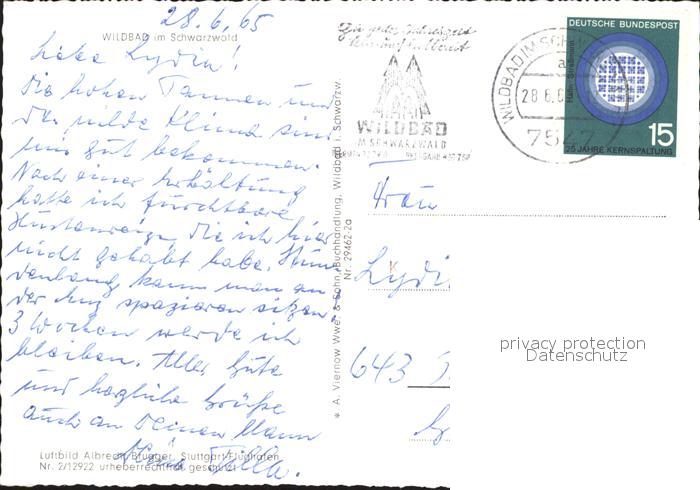 28.6.65
WILDBAD im Schwarzwald
Liebe Lydia!
Die hohen Tannen und
das milde Klima sind
mir gut bekommen.
Nach einer Erkältung
hatte ich furchtbare
Hustenreize, die ich hier
nicht gehabt habe.
kann man an
der Enz spazieren sitzen.
3 Wochen werde ich
bleiben. Alles Gute
und herzliche Grüße
auch an Deinen Mann
Deine
Luftbild Albrecht Brugger, Stuttgart-Flughafen
Nr. 2/12922 urheberrechtlich geschützt
* A. Viernow Wwe. & Sohn, Buchhandlung, Wildbad i. Schwarzw.
Nr. 29462-2a
WILDBAD
IM SCHWARZWALD
WILDBAD IM SCHW
a
28.6.6
7547
DEUTSCHE BUNDESPOST
Hahn-Straßmann
15
25 JAHRE KERNSPALTUNG
Frau
Lydi
643
privacy protection
Datenschutz